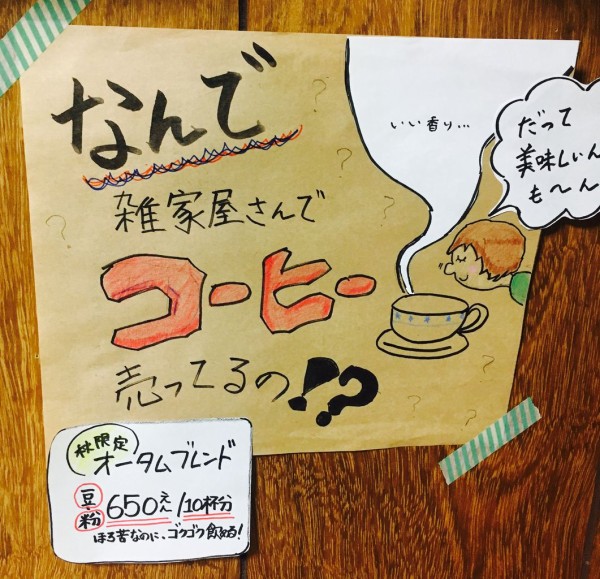 なんで
雑家屋さんで
コーヒー
売ってるの!?
いい香り...
だって
美味しいん
も〜ん
秋限定
オータムブレンド
豆・粉 650えん/10杯分
ほろ苦なのに、ゴクゴク飲める!